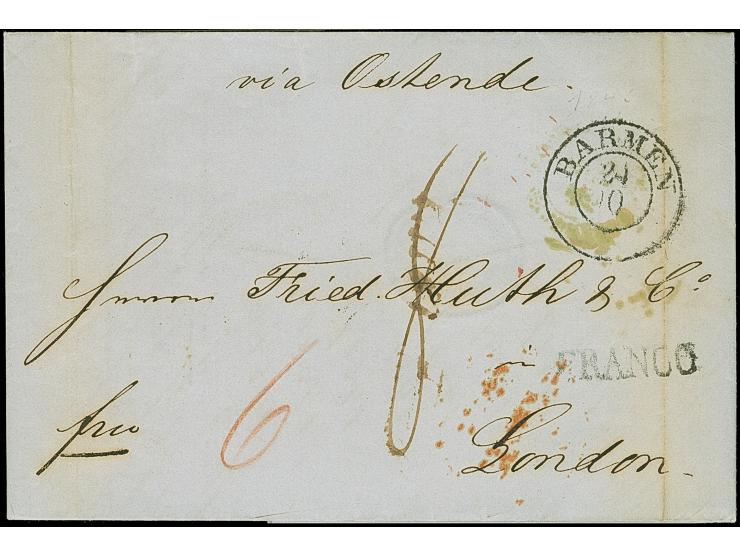 via Ostende.
BARMEN
24
10
Herren Fried. Huth & Co
in
FRANCO
frco
6
London.